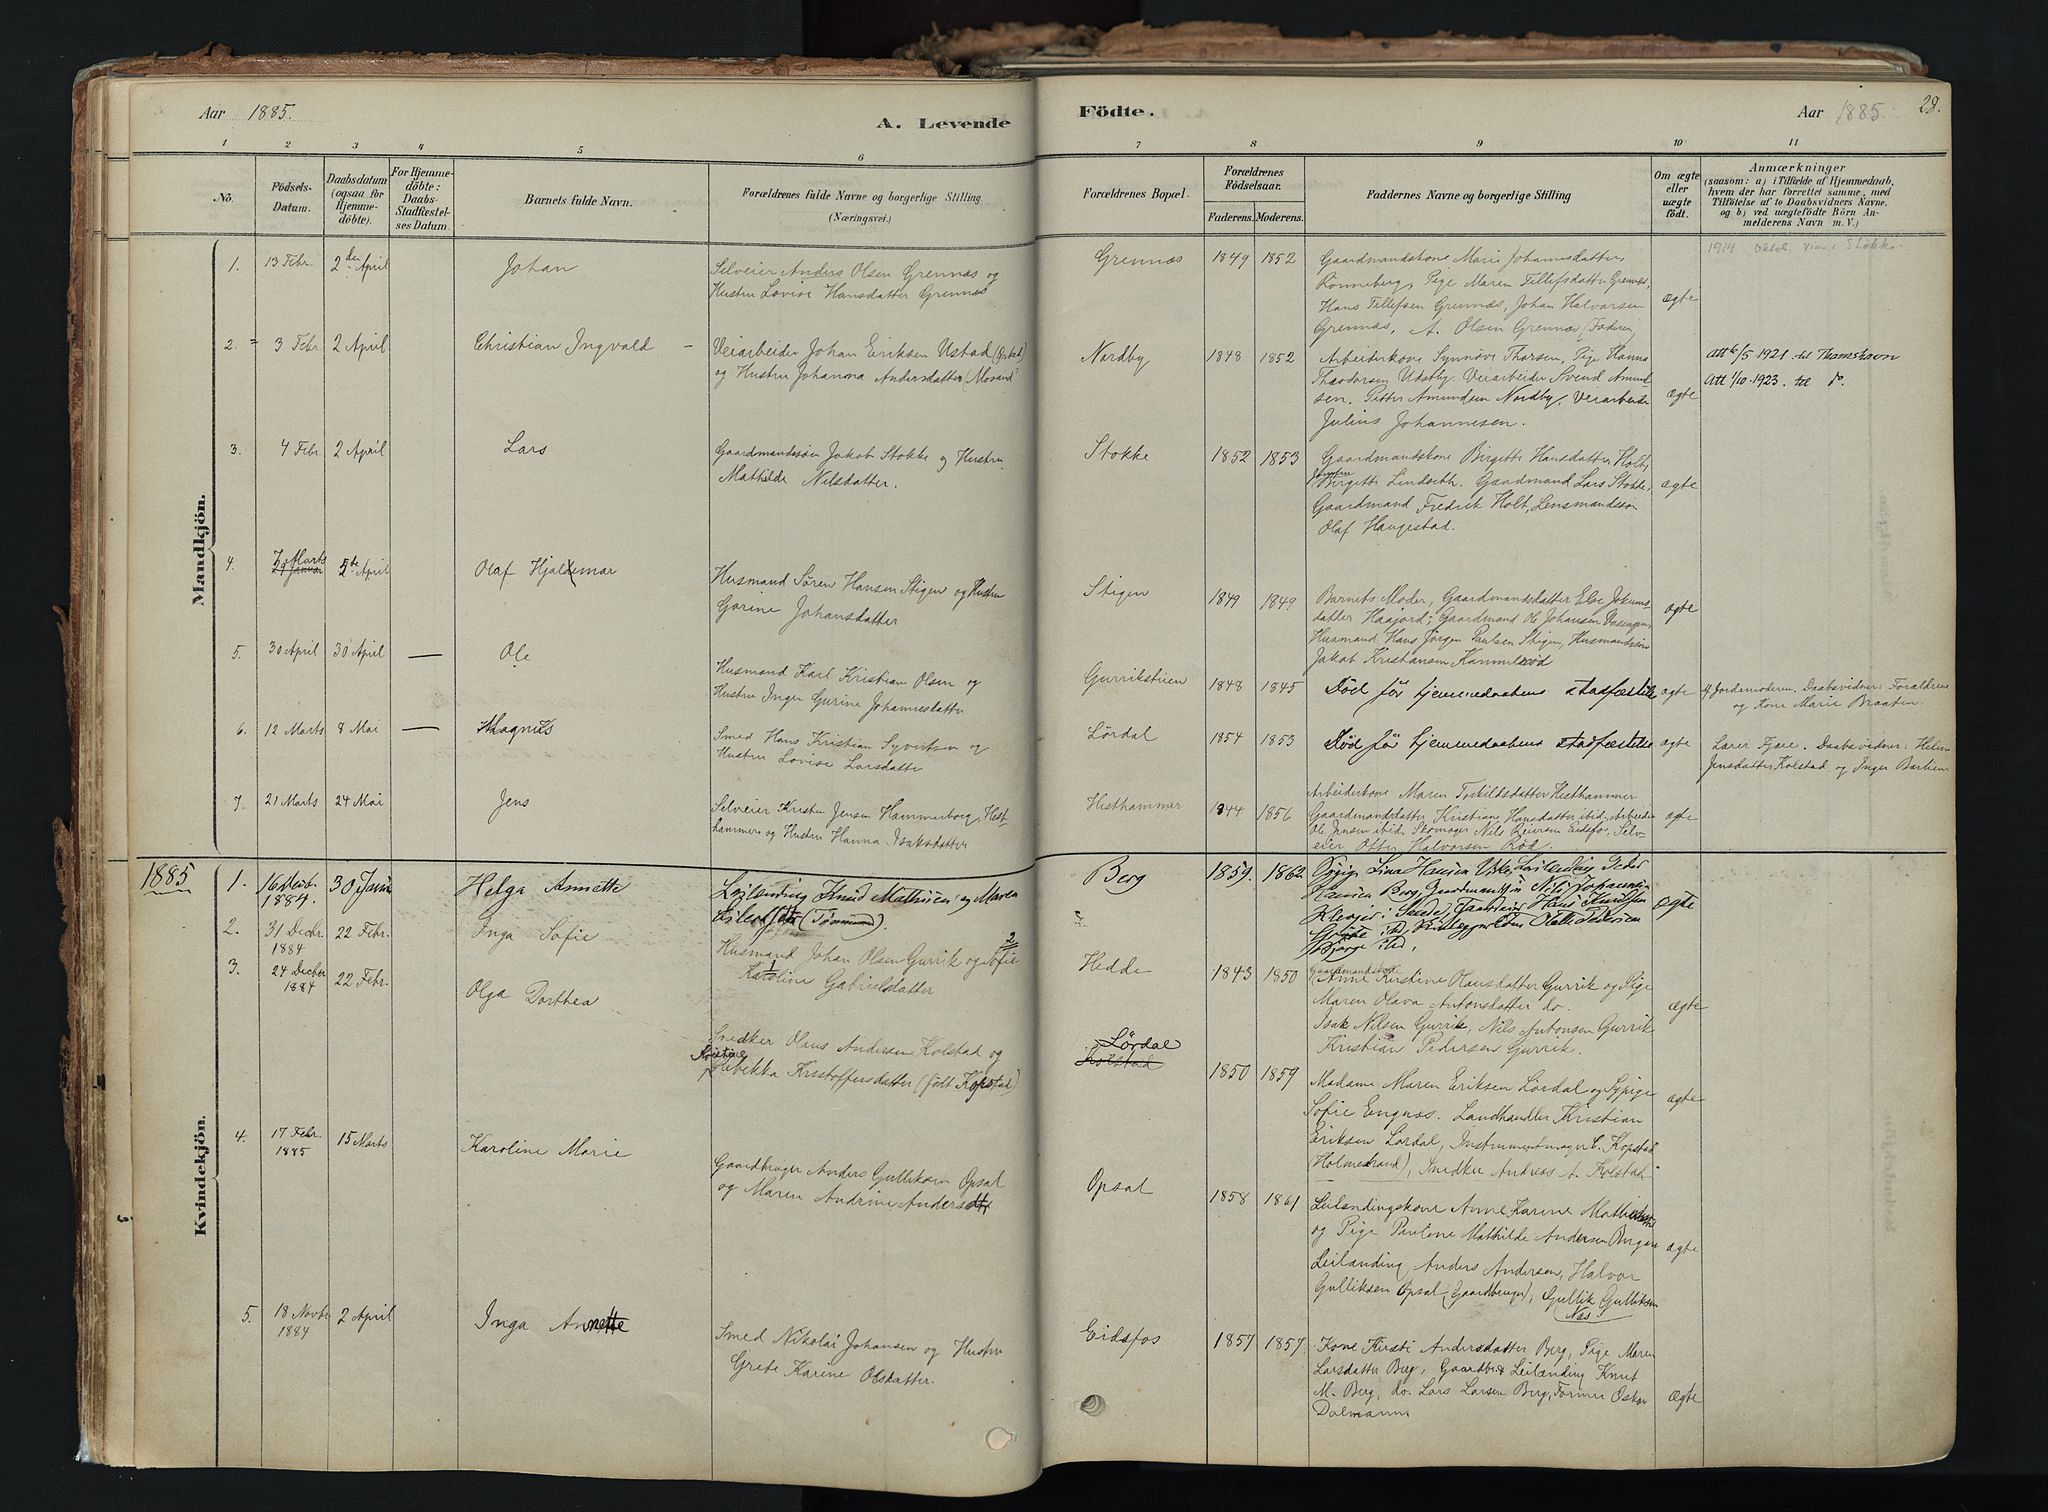 Aar 1885.
A. Levende
1 2 3 4 5 6
No.
Födsels-Datum.
Daabsdatum (ogsaa for Hjemme-döbte).
For Hjemme-döbte: Daabs-Stadfæstel-ses Datum.
Barnets fulde Navn.
Forældrenes fulde Navne og borgerlige Stilling
(Næringsvei.)
Mandkjön.
1. 13 Febr. 2den April Johan
Selveier Anders Olsen Grennæs og
Hustru Lovise Hansdatter Grennæs
2. = 3 Febr. 2 April Christian Ingvald –
Veiarbeider Johan Eriksen Ustad
og Hustru Johanna Andersdatter
3. 4 Febr. 2 April Lars
Gaardmandssön Jakob Stokke og Hustru
Mathilde Nilsdatter.
4. 7 Marts 5te April Olaf Hjalmar
Husmand Sören Hansen Stigen og Hustru
Gorine Johansdatter
5. 30 April 30 April — Ole
Husmand Karl Kristian Olsen og
Hustru Inger Gurine Johannesdatter
6. 12 Marts 8 Mai — Magnus
Smed Hans Kristian Syvertsen og
Hustru Lovise Larsdatter
7. 21 Marts 24 Mai Jens
Selveier Kristen Jensen Hammerborg, Hest-
hammer og Hustru Hanna Isaksdatter
1885
Kvindekjön.
1. 16 1884. 30 Helga Annette
Leilending Knud Mathisen og Maren
(Tømmeraas).
2. 31 Decbr. 1884 22 Febr. Inga Sofie
Husmand Johan Olsen Gurrik og Sofie
Karolina Gabrielsdatter
3. 24 Decbr 1884 22 Febr. Olga Dorthea
Snedker Olaus Andersen Kolstad og
Kristine Rebekka Kristoffersdatter (født Kopstad)
4. 17 Febr. 1885 15 Marts Karoline Marie
Gaardbruger Anders Gulliksen Opsal
og Maren Andrine Andersdtr
5. 18 Novbr 1884 2 April Inga Annette
Smed Nikolai Johansen og Hustru
Grete Karine Olsdatter.
Födte.
Aar 1885
28.
7 8 9 10 11
Forældrenes Bopæl.
Forældrenes Födselsaar.
Faderens. Moderens.
Faddernes Navne og borgerlige Stilling
Om ægte eller uægte födt.
Anmærkninger
(saasom: a) i Tilfælde af Hjemmedaab,
hvem der har forrettet samme, med
Tilföielse af to Daabsvidners Navne,
og b) ved uægtefödte Börn An-
melderens Navn m. V.)
1914
Grennæs 1849 1852
Gaardmandskone Marie Johannesdatter,
Rönneberg, Pige Maren Tellefsdatter Grennæs,
Hans Tellefsen Grennæs, Johan Halvorsen
Grennæs, A. Olsen Grennæs (Faderen)
ægte
Nordby 1848 1852
Arbeiderkone Synnöve Thorsen, Pige Hanna
Theodorsen Udstby. Veiarbeider Svend Amund-
sen. Petter Amundsen Nordby, Veiarbeider
Julius Johannesen.
ægte
Att 6/5 1921 til Thamshavn
Att 1/10-1923 til do.
Stokke 1852 1853
Gaardmandskone Birgitte Hansdatter Holt,
Birgitte Lindseth. Gaardmand Lars Stokke,
Gaardmand Fredrik Holt, Lensmandssön
Olaf Haugestad.
ægte
Stigen 1849 1849
Barnets Moder, Gaardmandsdatter Else Jokums-
datter Haajord, Gaardmand Ole Johansen
Husmand Hans Jörgen Paulsen Stigen, Husmandssön
Jakob Kristiansen Hammeröd
ægte
Gurrikstuen 1848 1845
Död før hjemmedaabens stadfæstelse
ægte
af Jordemoderen. Daabsvidner: Forældrene
og Kone Marie Braaten.
Lördal 1854 1853
Död før hjemmedaabens stadfæstelse
ægte
Lærer Fjære. Daabsvidner: Helene
Jensdatter Kolstad og Inger
Hesthammer 1844 1856
Arbeiderkone Maren Torkildsdatter Hesthammer
Gaardmandsdatter Kristiane Hansdatter ibid, Arbeider
Ole Jensen ibid, Skomager Nils Reiersen Eidsfos, Selv-
eier Otter Halvorsen Röd.
ægte
Berg 1859. 1862
Lina Hansen Leilending Peder
Hansen Berg, Gaardmands Nils Johannes
Hans Knudsen
ægte
Hedde 1843 1850
Gaardmandskone
Anne Kirstine Olausdatter Gurrik og Pige
Maren Olava Antonsdatter do.
Isak Nilsen Gurrik, Nils Antonsen Gurrik
Kristian Pedersen Gurrik.
ægte
Lördal
Kolstad 1850 1859
Madame Maren Eriksen Lördal og Sypige
Sofie Engnæs. Landhandler Kristian
Eriksen Lördal, Instrumentmager C. Kopstad
(Holmestrand), Snedker Andreas A. Kolstad
ægte
Opsal 1858 1861
Leilendingskone Anne Karine
og Pige Pauline Mathilde Andersen
Leilending Anders Andersen, Halvor
Gulliksen Opsal (Gaardbruger), Gullik Gulliksen
Næs.
ægte
Eidsfos 1857 1857.
Kone Kirsti Andersdatter Berg, Pige Maren
Larsdatter Berg, Gaardbr. Leilending Knut
M. Berg, do. Lars Larsen Berg, Former Oskar
Dalmann.
ægte